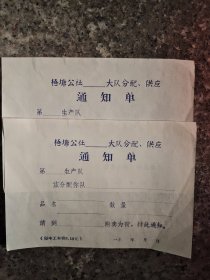 杨塘公社______大队分配、供应
通知单
第______生产队
杨塘公社______大队分配、供应
通知单
第______生产队
应分配你队
品名______数量
请到______购卖为荷，特此通知。
年 月 日